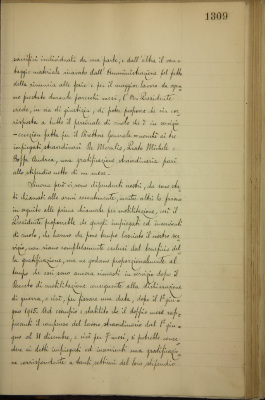 1309
sacrifici individuali da una parte, e dall'altra il van-
taggio materiale ricavato dall'Amministrazione pel fatto
della rinuncia alle ferie e per il maggior lavoro da ognu-
no prestato durante parecchi mesi, l'On. Presidente
crede, in via di giustizia, di poter proporre che sia cor-
risposta a tutto il personale di ruolo che è in servizio
- eccezion fatta per il Direttore Generale nonché ai tre
impiegati straordinari
Andrea, una gratificazione straordinaria pari
allo stipendio netto di un mese.
Siccome però vi sono dipendenti nostri, che sono sta-
ti chiamati alle armi recentemente, mentre altri lo furono
in seguito alla prima chiamata per mobilitazione, così il
Presidente proporrebbe che quegli impiegati ed inservienti
di ruolo, che hanno da poco tempo lasciato il nostro ser-
vizio, non siano completamente esclusi dal beneficio del-
la gratificazione, ma ne godano proporzionalmente al
tempo che essi sono ancora rimasti in servizio dopo il
Decreto di mobilitazione conseguente alla dichiarazione
di guerra, e cioè, per fissare una data, dopo il 1° giu-
gno 1915. Ad esempio: stabilito che il doppio mese rap-
presenti il compenso del lavoro straordinario dal 1° giu-
gno al 31 dicembre, e cioè per 7 mesi, si potrebbe conce-
dere ai detti impiegati ed inservienti una gratificazio-
ne corrispondente a tanti settimi del loro stipendio